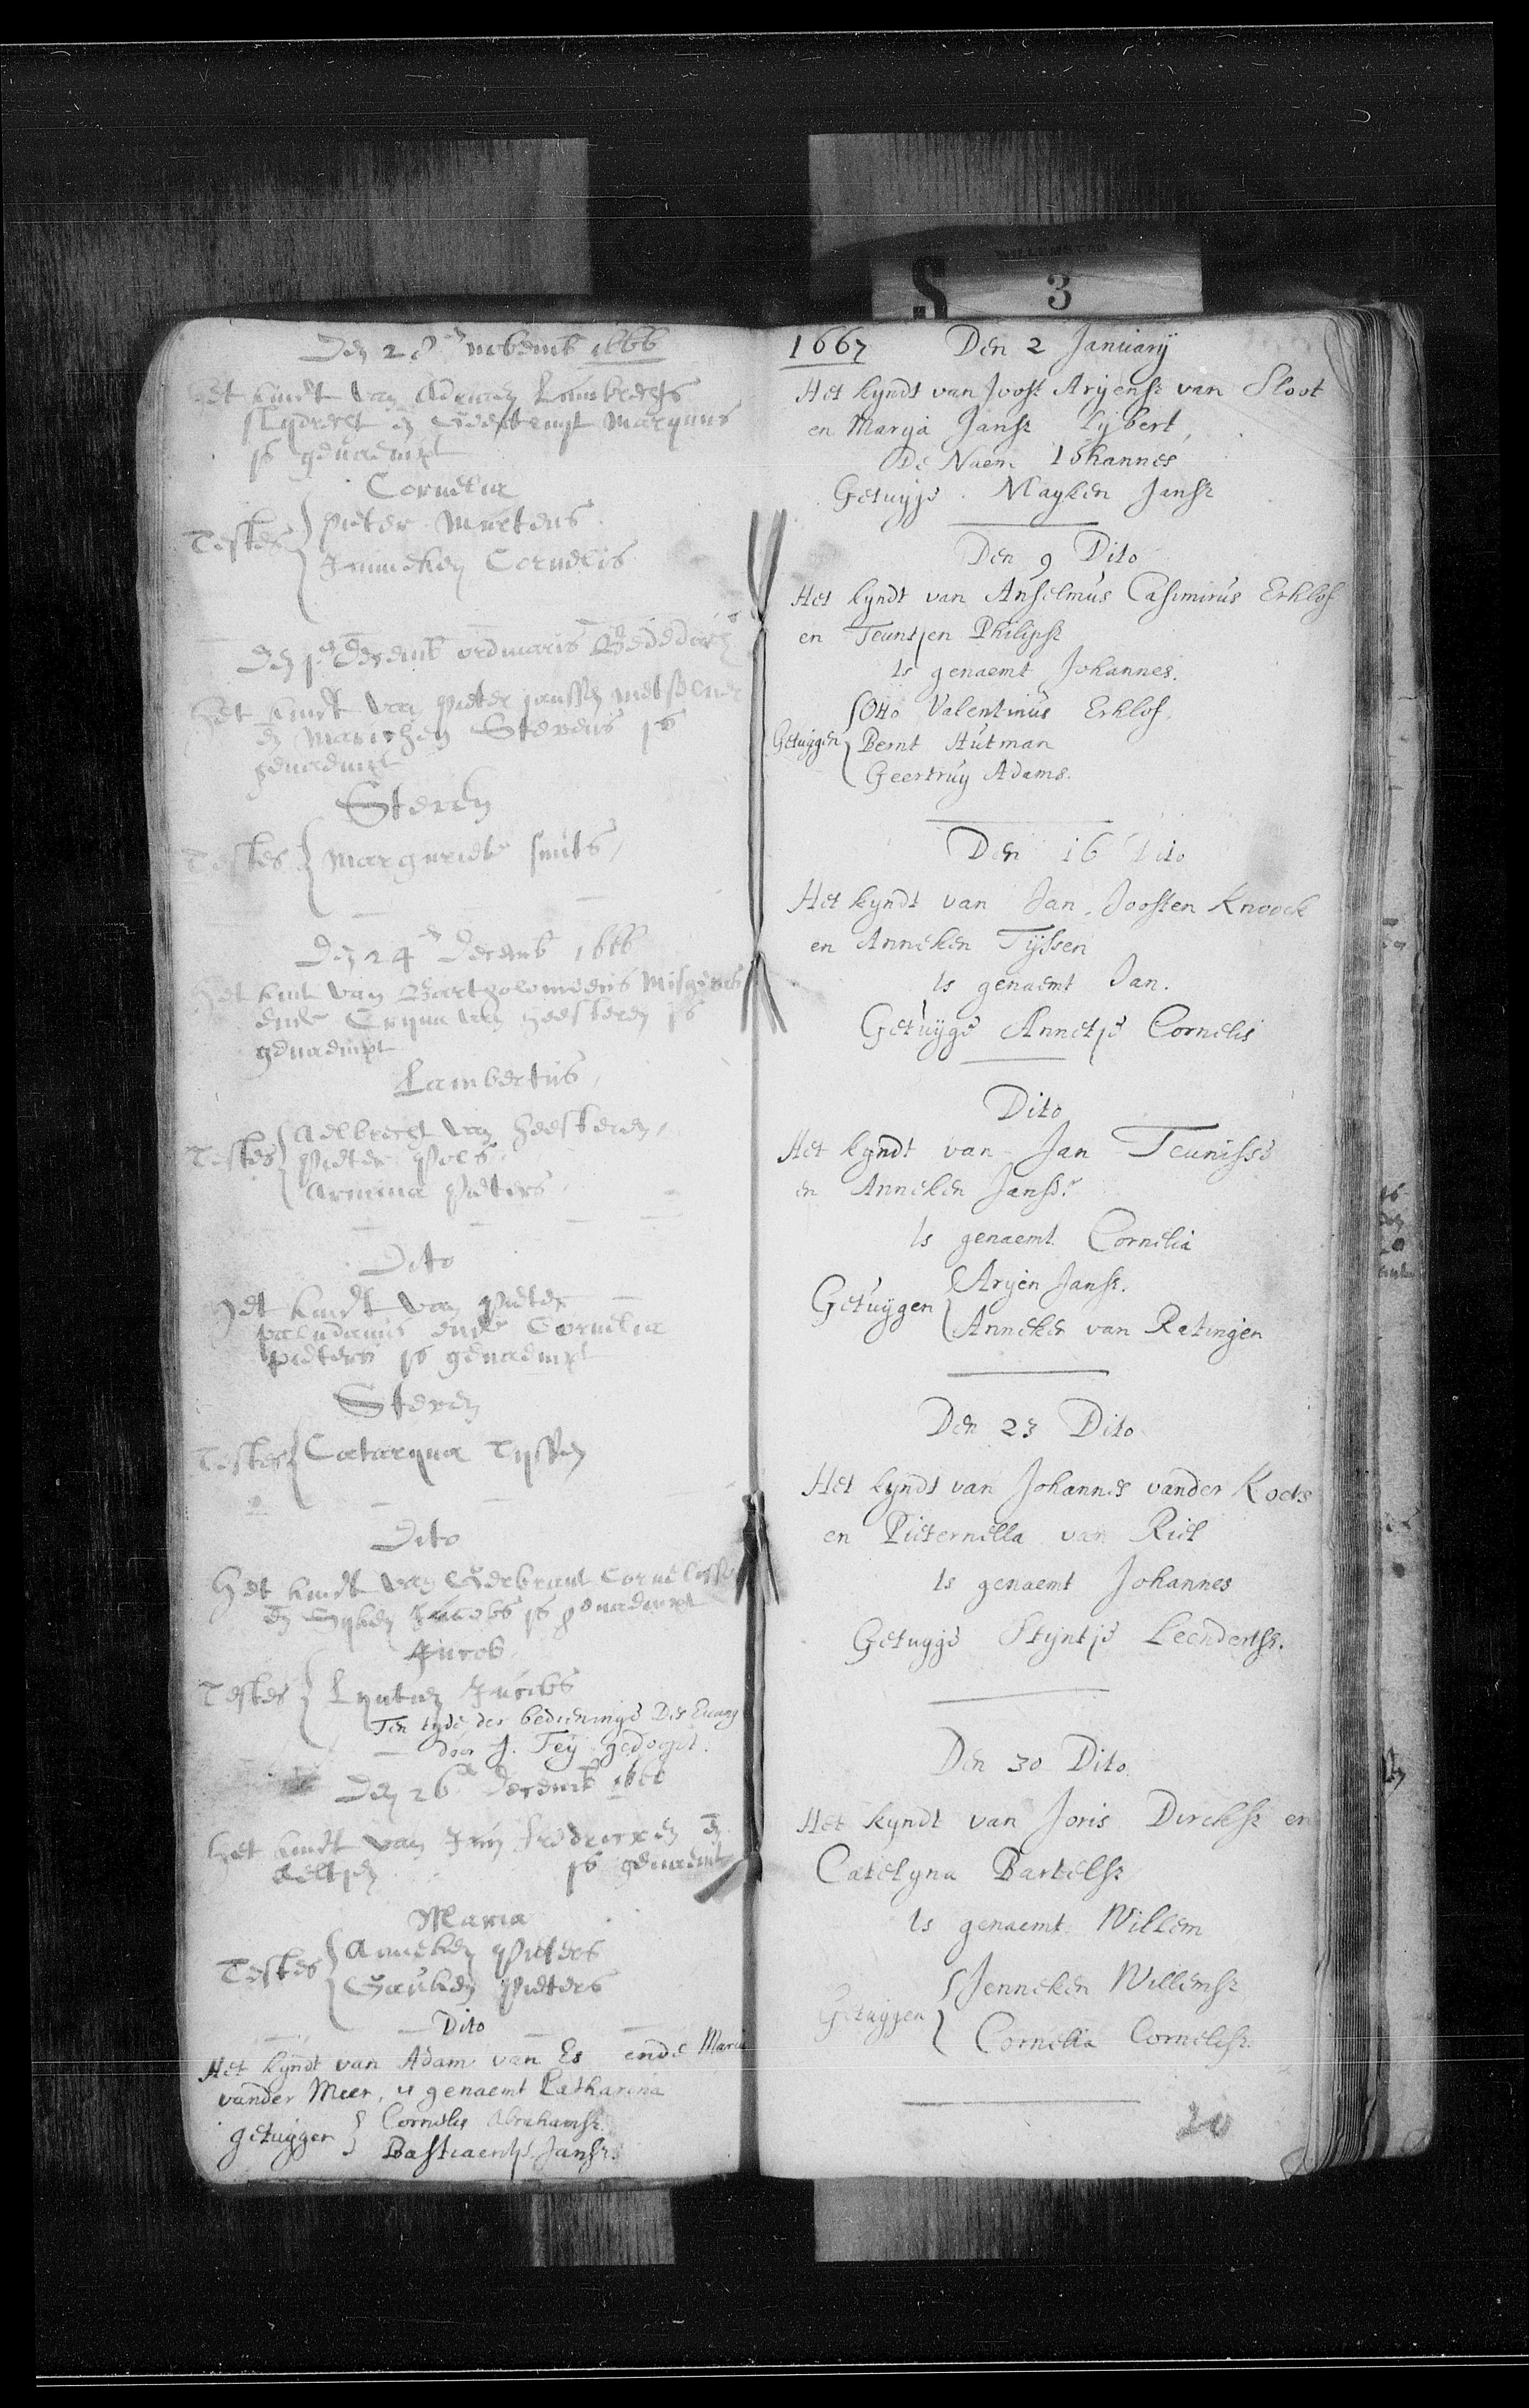 WILLEMSTAD
S 3
Den 28en 1666
Het kindt van Adriaen Lambrechts
en Geertruyt Marynus
is genaempt
Cornelia
Testes Pieter Martens
Janneken Cornelis
Den decemb ordinaris Bededach
Het kindt van Pieter Janssen metselaer
en Maricken Stevens is
genaempt
Steven
Testes Margeriete smits
Den 24en decemb 1666
Het kint van Bartholomeus
ende Tryna van Heesteren is
genaempt
Lambertus
Testes Aelbrecht van Heesteren
Pieter Pols
Armina Pieters
Dito
Het kindt van Pieter
Paludanus ende Cornelia
Pieters is genaempt
Steven
Testes Cataryna Tyssen
Dito
Het kindt van Gerbrant Cornelisse
en Jacobs is genaempt
Jacob
Testes Lyntien Jacobs
Ten tyde der bedieninge Des Euang
door J. Feij gedoopt.
Den 26en decemb 1666
Het kindt van Jan en
Aeltjen is genaemt
Maria
Testes Anneken Pieters
Pieters
Dito
Het kyndt van Adam van Es ende Maria
vander Meer, is genaemt Catharina
getuygen Cornelis Abrahamsz
Bastiaentje Jansz.
1667 Den 2 January
Het kyndt van Joost Aryensz van Sloot
en Marya Jansz Lybert,
De Naem Iohannes
Getuyge Mayken Jansz
Den 9 Dito
Het kyndt van Anselmus Casimirus Erklof
en Teuntjen Philipsz
Is genaemt Johannes.
Otto Valentinus Erklof,
Getuygen Bernt Hutman
Geertruy Adams.
Den 16 Dito
Het kyndt van Jan Joosten Knoock
en Anneken Tyssen
Is genaemt Jan.
Getuyge Annetje Cornelis
Dito
Het kyndt van Jan Teunisse
en Anneken Janss.
Is genaemt Cornelia
Getuygen Aryen Jansz.
Anneken van Ratingen
Den 23 Dito
Het kyndt van Johannes vander Koets
en Pieternella van Riel
Is genaemt Johannes
Getuyge Styntje Leendertsz.
Den 30 Dito
Het kyndt van Joris Dircksz en
Catelyna Bartelsz
Is genaemt Willem
Getuygen Jenneken Willemsz
Cornelia Cornelisz.
20